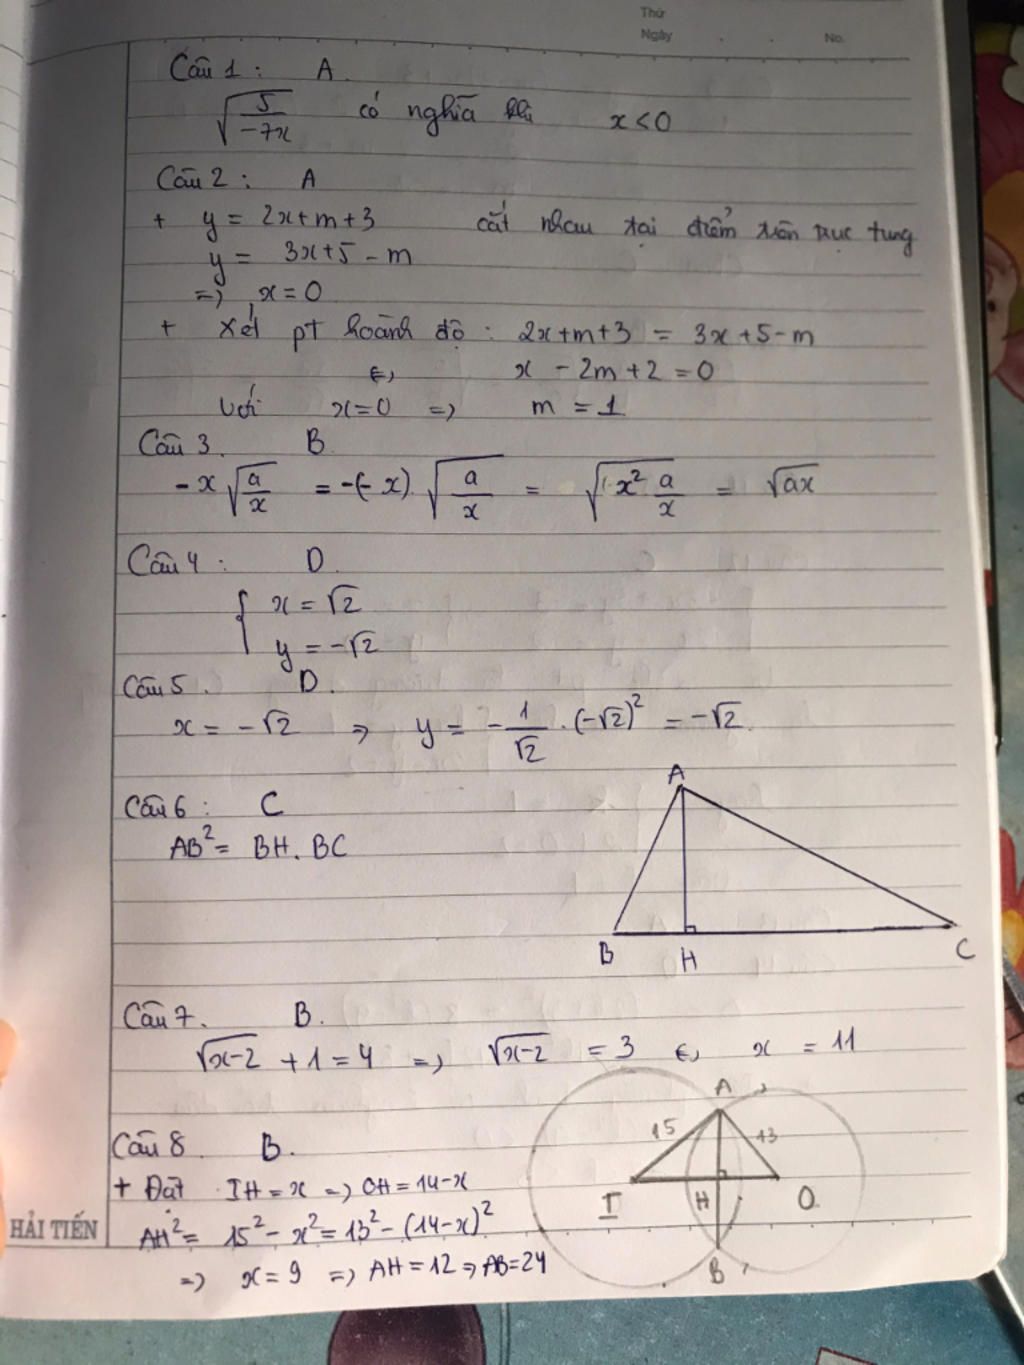 Thứ
Ngày . . No.
Câu 1 : A.
√(5/(-7x)) có nghĩa khi x < 0
Câu 2 : A
+ y = 2x+m+3 cắt nhau tại điểm trên trục tung
y = 3x+5-m
=> x=0
+ Xét pt hoành độ : 2x+m+3 = 3x+5-m
<=> x - 2m+2 = 0
Với x=0 => m = 1
Câu 3. B
-x√(a/x) = -(-x).√(a/x) = √(x² a/x) = √(ax)
Câu 4 : D
{ x = √2
y = -√2
Câu 5. D.
x = -√2 => y = -1/√2 . (-√2)² = -√2.
Câu 6 : C
AB² = BH. BC
A
B H C
Câu 7. B.
√(x-2) + 1 = 4 => √(x-2) = 3 <=> x = 11
Câu 8. B.
+ Đặt IH = x => OH = 14-x
AH² = 15² - x² = 13² - (14-x)²
=> x = 9 => AH = 12 => AB = 24
A
15 13
I H O
B
HẢI TIẾN